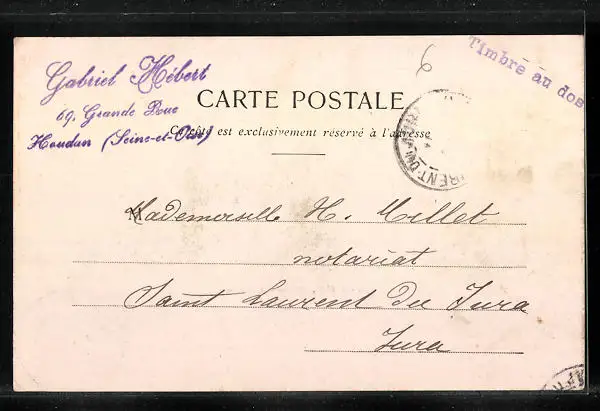 Gabriel Hébert
69, Grande Rue
Houdan (Seine-et-Oise)
Timbre au dos
6
CARTE POSTALE
Ce côté est exclusivement réservé à l'adresse
Mademoiselle H. Millet
notariat
Saint Laurent du Jura
Jura